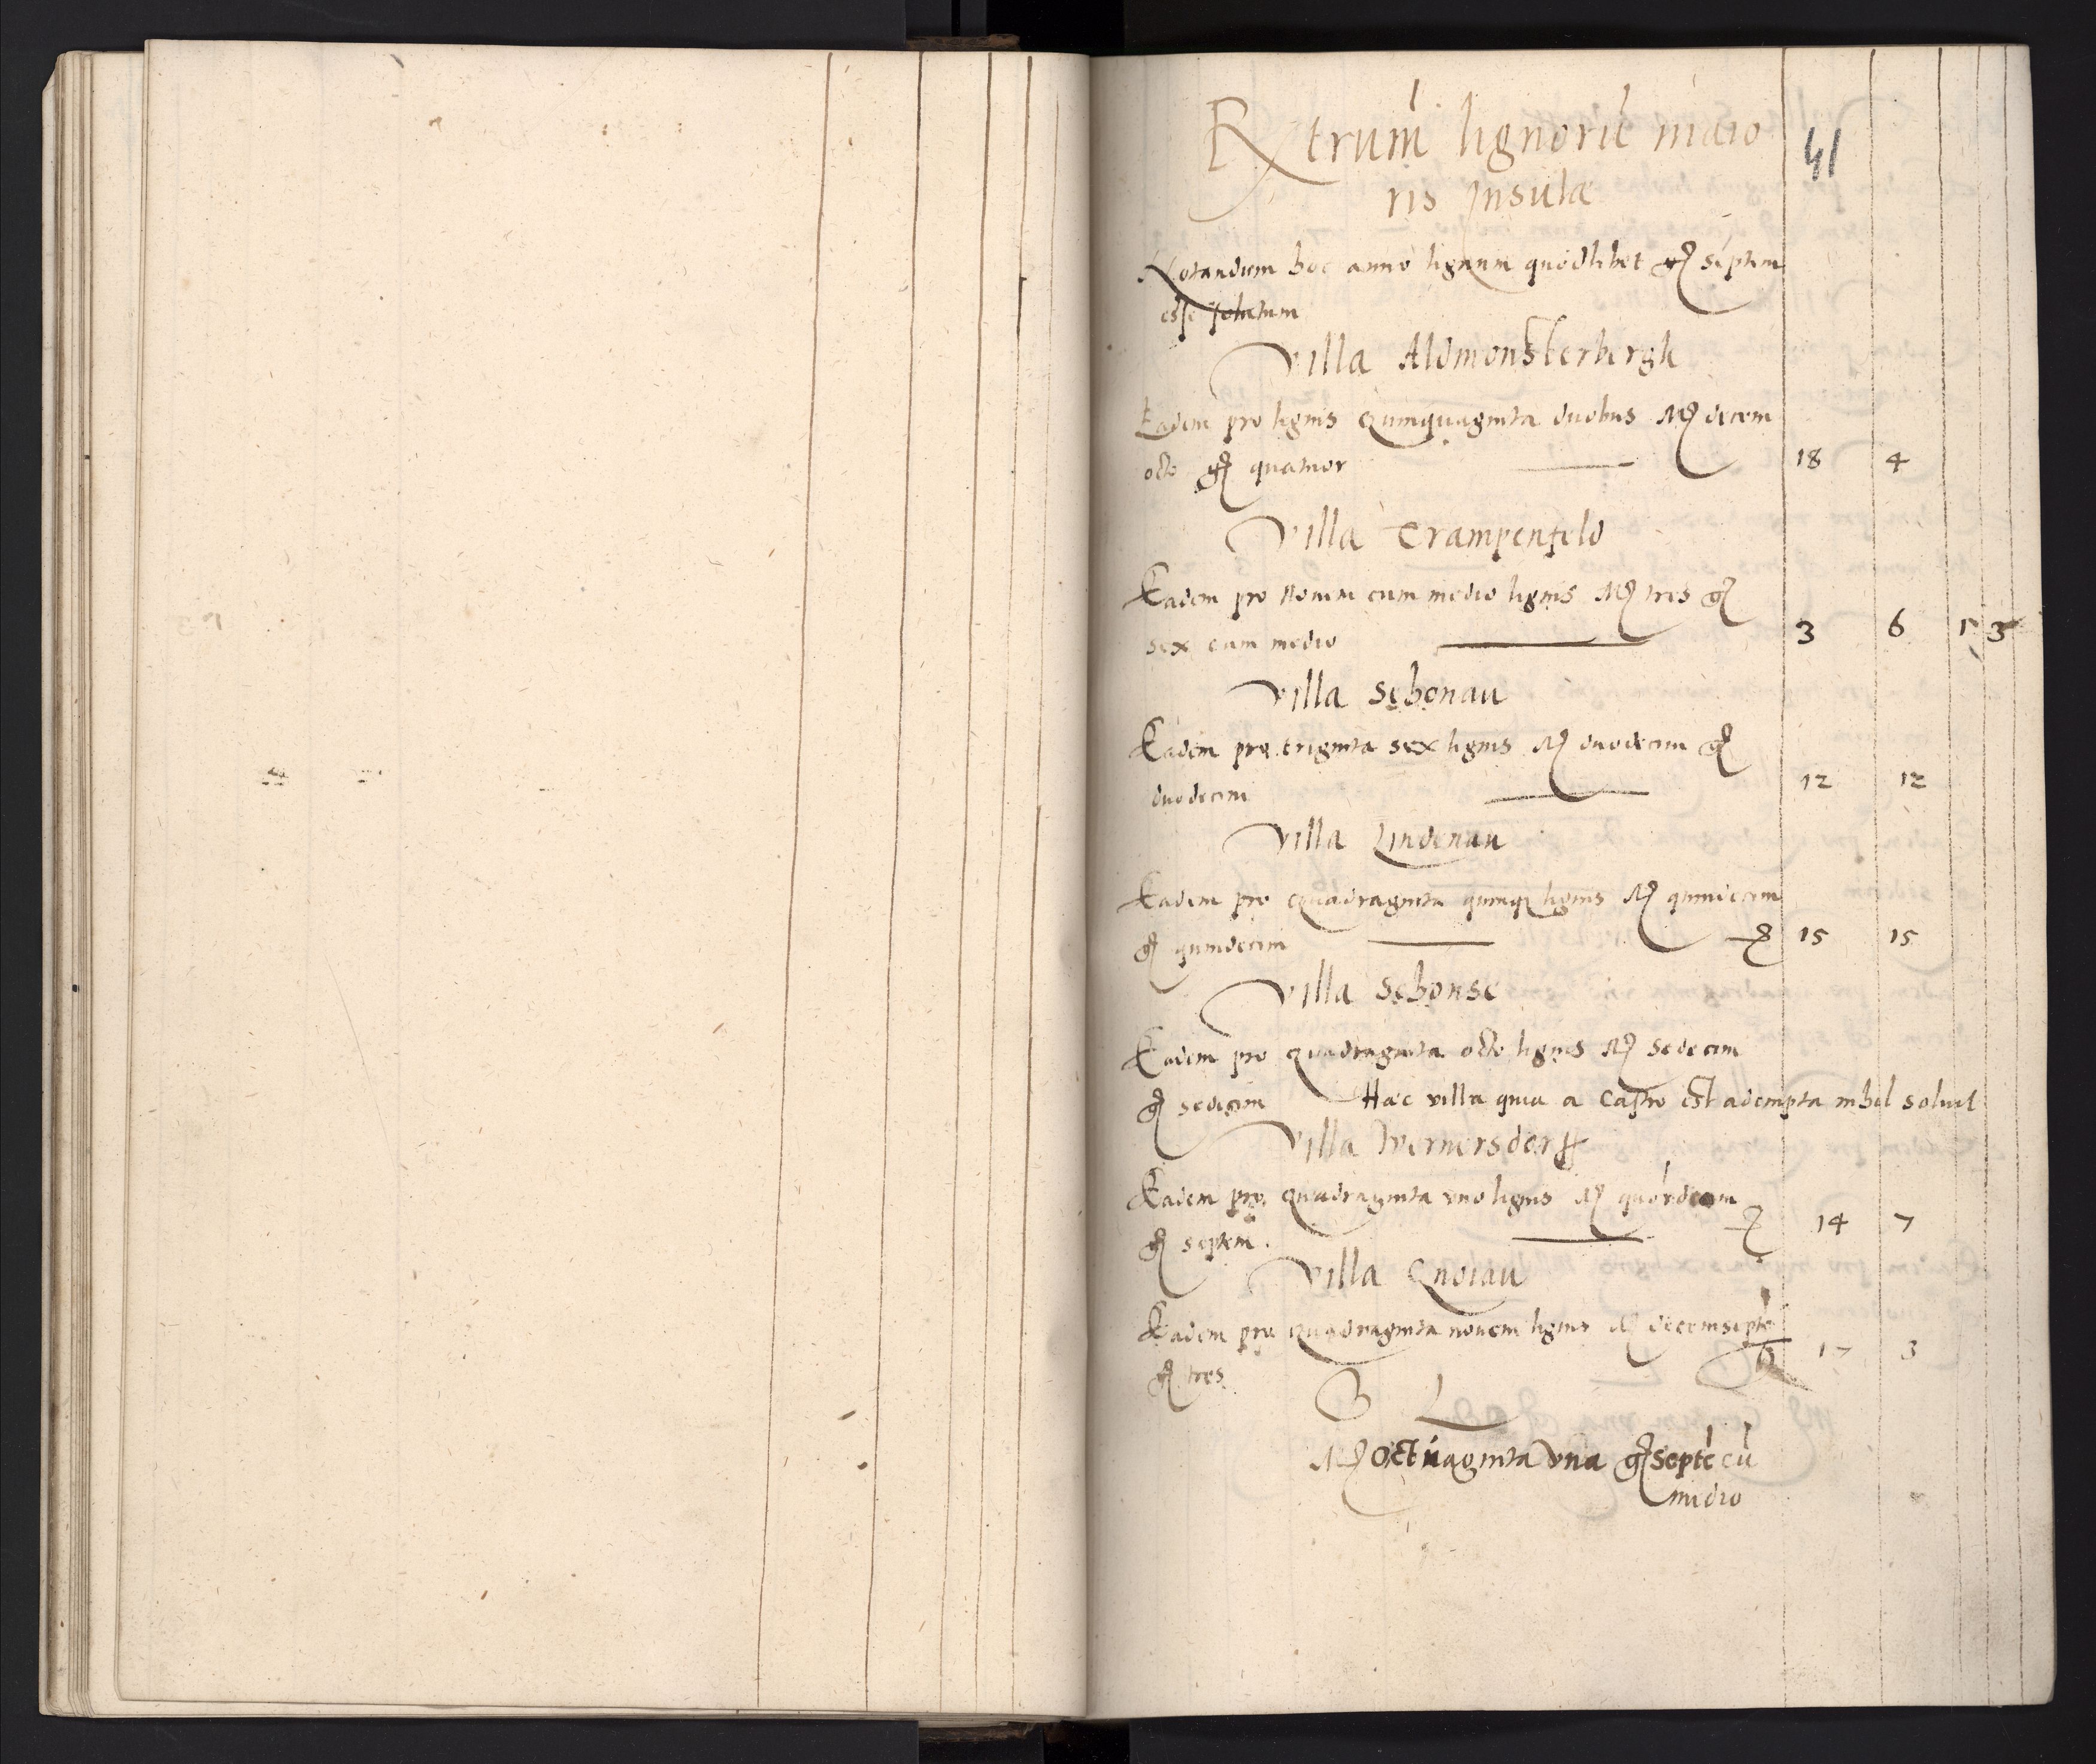 Extrum lignorū maio
41
ris Insulæ
Notandum hoc anno lignum quodlibet gr septem
esse solutum
Villa Aldmonsterbergk
Eadem pro lignis quinquaginta duobus Mr decem
octo gr quatuor — 18 4
Villa Crampenfeld
Eadem pro Nouem cum medio lignis Mr tres gr
sex cum medio — 3 6 1 3
Villa Schonau
Eadem pro triginta sex lignis Mr duodecim gr
duodecim — 12 12
Villa Lindenau
Eadem pro quadraginta quinq lignis Mr quindecim
gr quindecim — 15 15
Villa Schonse
Eadem pro quadraginta octo lignis Mr sedecim
gr sedecim Hæc villa quia a Castro est adempta nihil soluit
Villa Wernersdorff
Eadem pro quadraginta uno lignis Mr quordecim
gr septem. — 14 7
Villa Cnoiau
Eadem pro quadraginta nouem lignis Mr decemseptē
gr tres 17 3
Mr octuaginta vna gr septē cū
medio